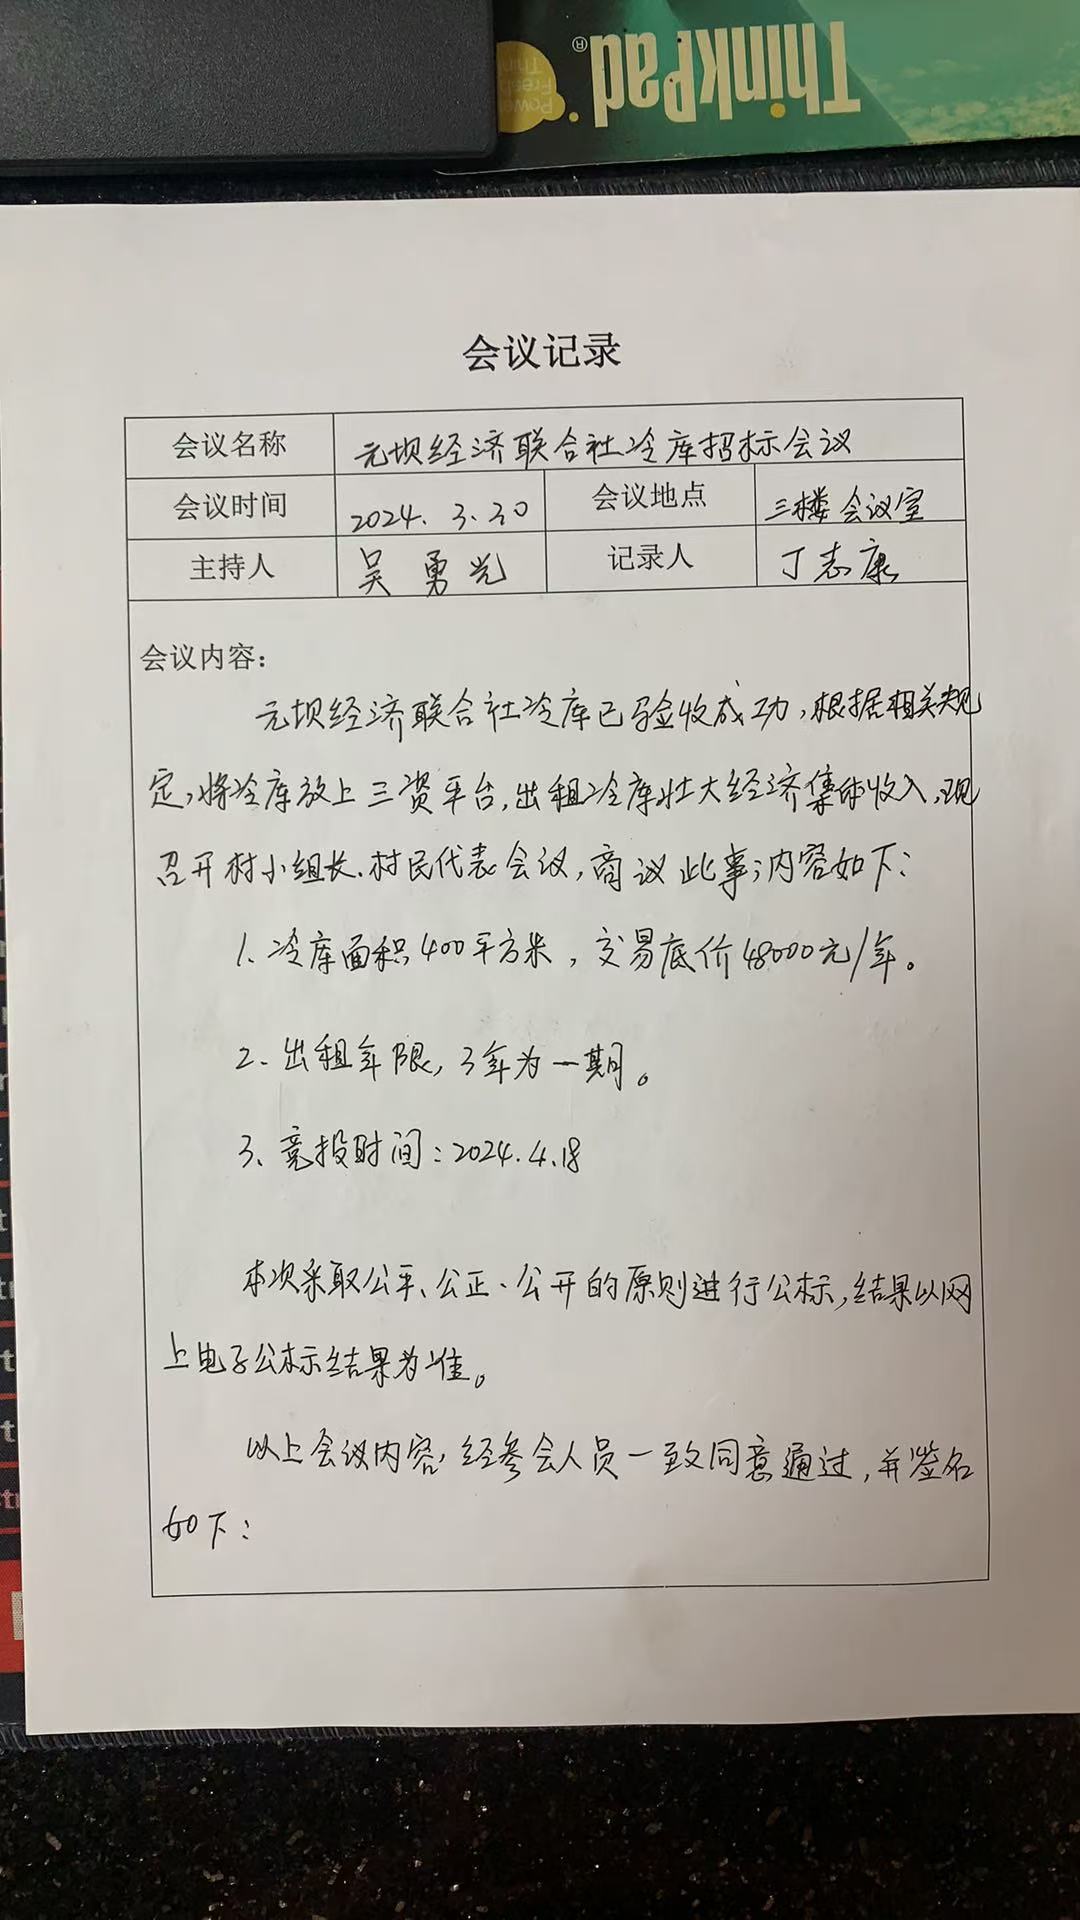 ThinkPad®
Power
Fresh
Thin
会议记录
会议名称 元坝经济联合社冷库招标会议
会议时间 2024.3.30 会议地点 三楼会议室
主持人 吴勇光 记录人 丁志康
会议内容：
元坝经济联合社冷库已验收成功，根据相关规
定，将冷库放上三资平台，出租冷库壮大经济集体收入，现
召开村小组长、村民代表会议，商议此事；内容如下：
1、冷库面积400平方米，交易底价48000元/年。
2、出租年限，3年为一期。
3、竞投时间：2024.4.18
本次采取公平、公正、公开的原则进行公标，结果以网
上电子公标结果为准。
以上会议内容，经参会人员一致同意通过，并签名
如下：